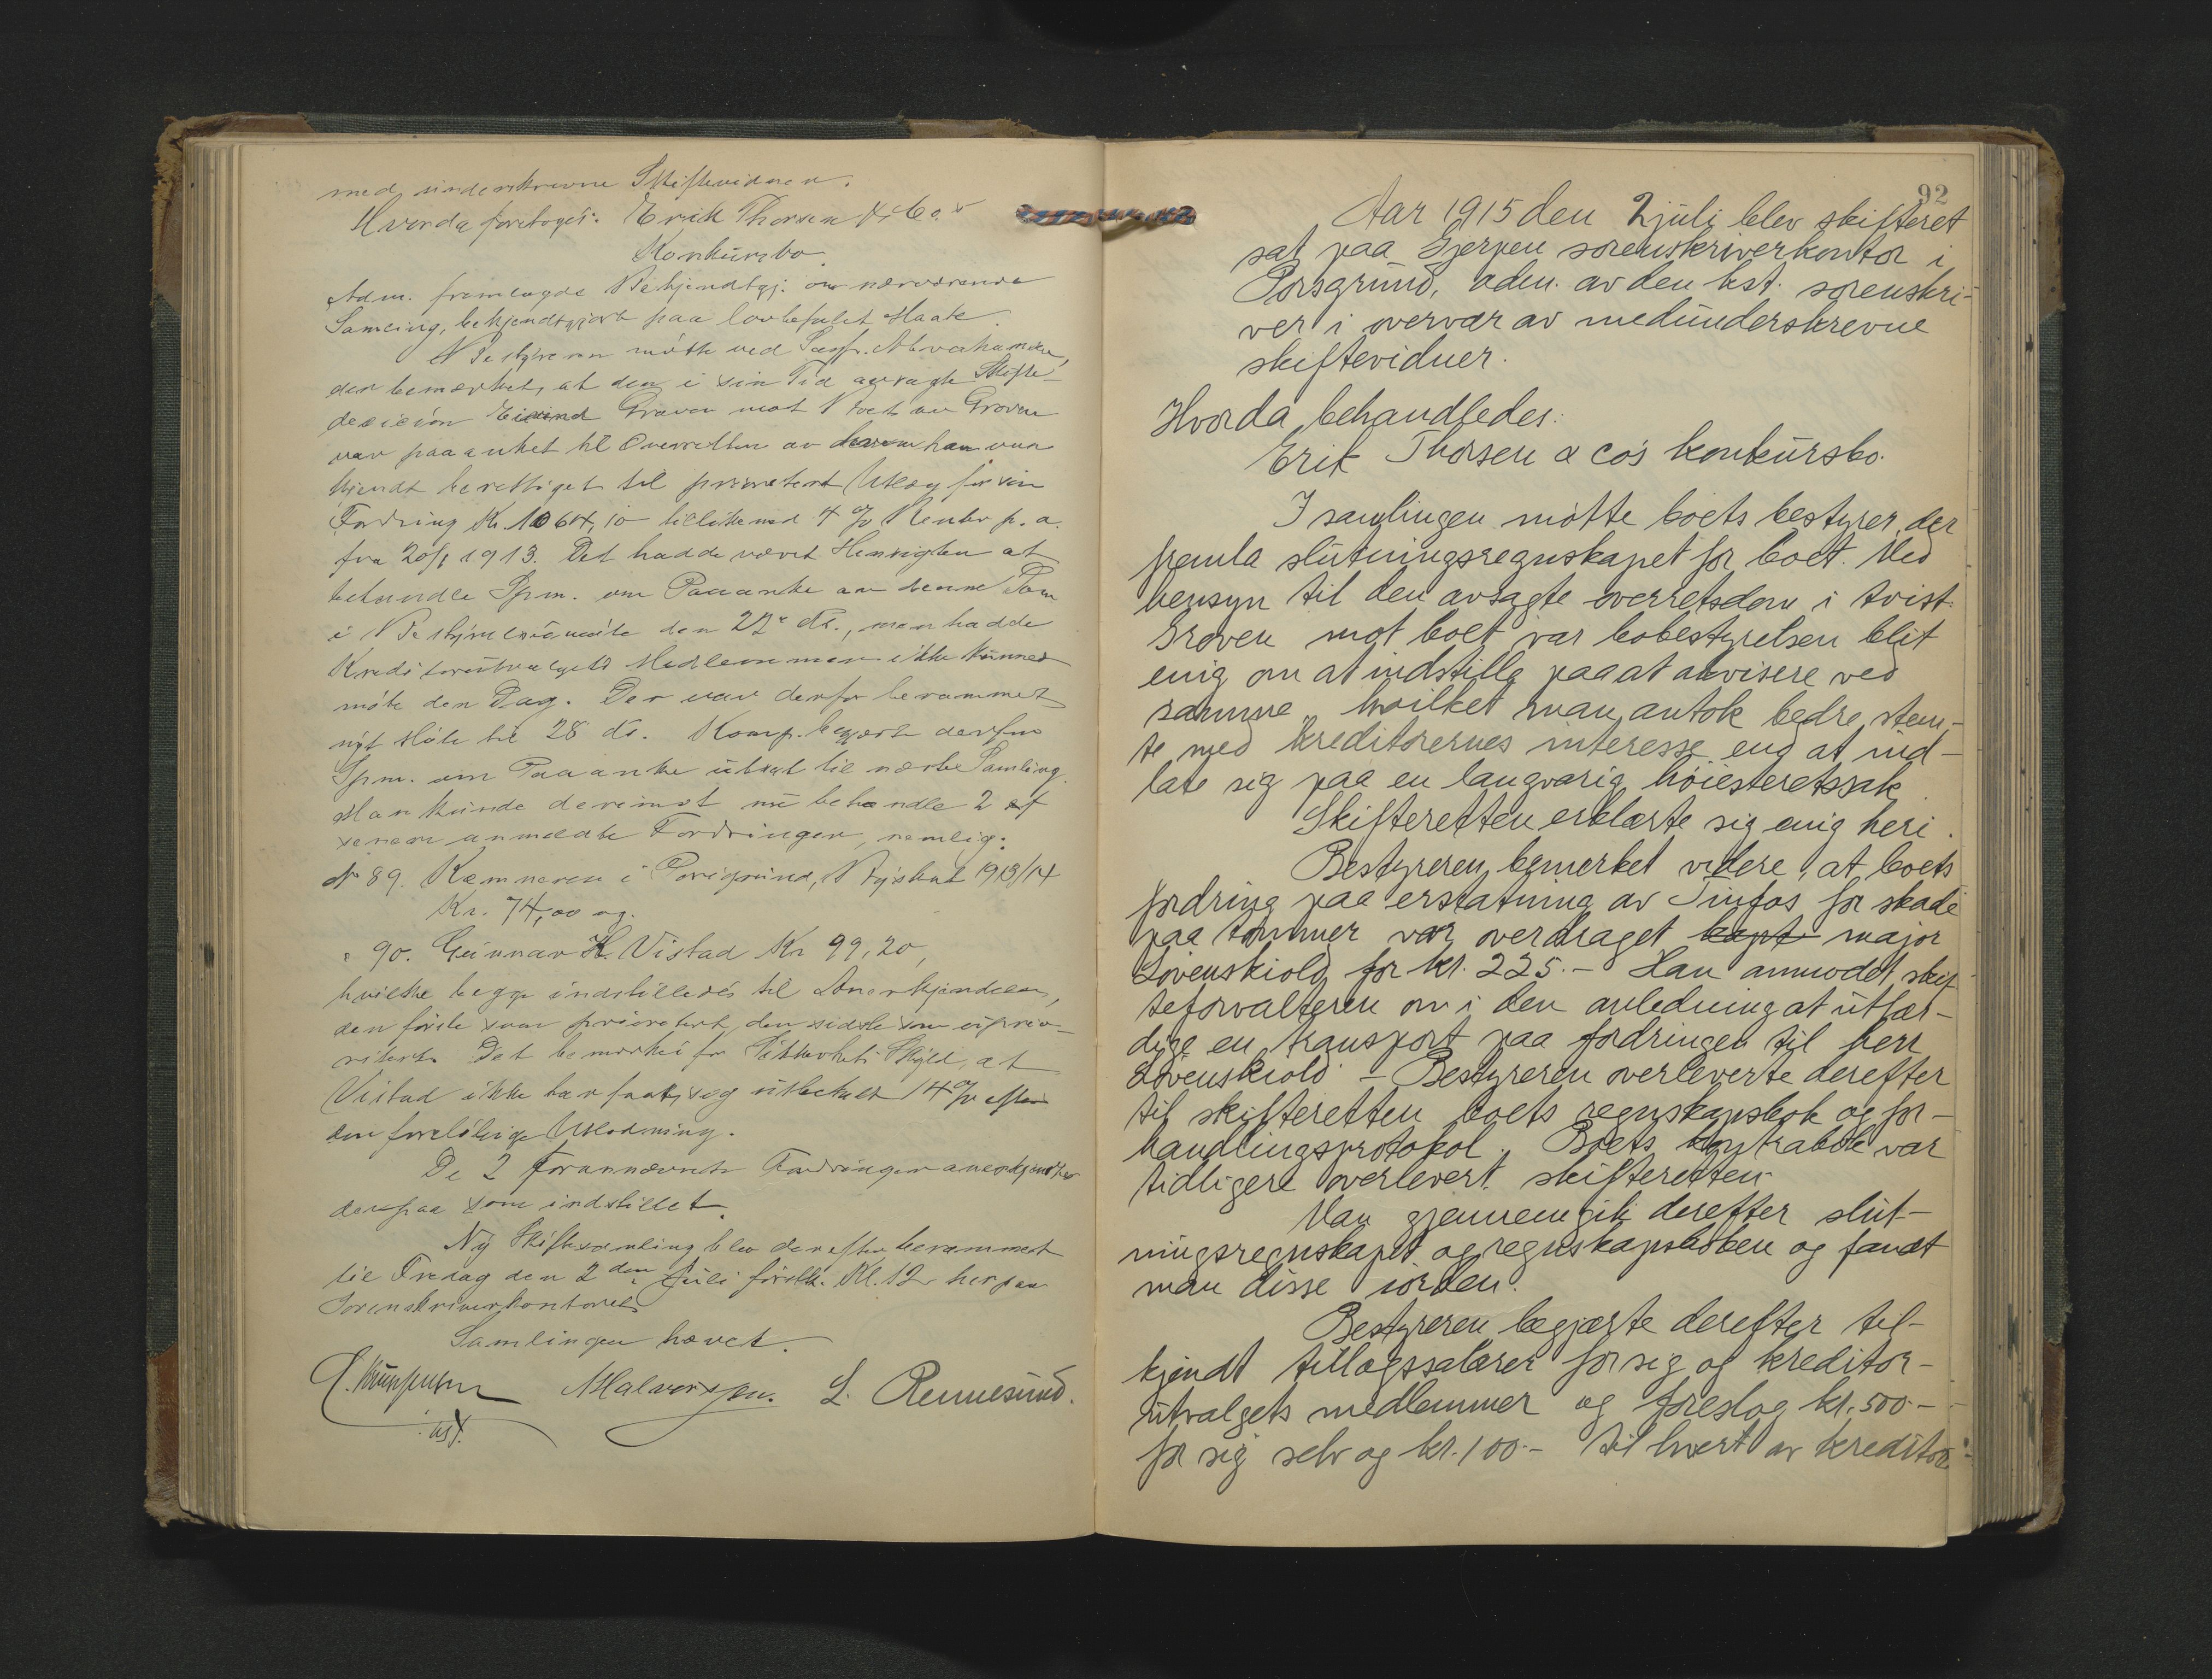 med underskrevne Skiftevidner.
Hvorda foretoges: Erik Thorsen & Co.s
Konkursbo.
Adm. fremlagde Bekjendtgj: om nærværende
Samling, bekjendtgjort paa lovbefalet Maate.
Bestyreren møtte ved Sagf. Halvorsen,
der bemærket, at den i sin Tid avsagte Skifte-
decision Eivind Graven mot Boet av Graven
var paaanket til Overretten av hvem han var
kjendt berettiget til prioritert Utlæg for sin
Fordring Kr. 1064,10 tillikemed 4 % Renter p. a.
fra 20/1 1913. Det hadde været Hensigten at
behandle Spm. om Paaanke av denne Dom
i Bestyrelsesmøte den 22de ds., men hadde
Kreditorutvalgets Medlemmer ikke kunnet
møte den Dag. Der var derfor berammet
nyt Møte til 28 ds. Komp. begjærte derfor
Spm. om Paaanke utsat til næste Samling.
Man kunde derimot nu behandle 2 af
senere anmeldte Fordringer, nemlig:
№ 89. Kæmneren i Porsgrund, Byskat 1913/14
Kr. 74,00 og
" 90. Gunnar H. Vistad Kr 99,20,
hvilke begge indstilledes til Anerkjendelse,
den første som prioritert, den sidste som uprio-
ritert. Det bemærkes for Sikkerheds Skyld, at
Vistad ikke har faat sig utbetalt 14 % efter
den foreløbige Utlodning.
De 2 forannævnte Fordringer anerkjendtes
derpaa som indstillet.
Ny Skiftesamling blev derefter berammet
til Fredag den 2den Juli førstk. Kl. 12 her paa
Sorenskriverkontoret.
Samlingen hævet.
Halvorsen. L. Rennesund.
cst.
92
Aar 1915 den 2 juli blev skifteret
sat paa Gjerpen sorenskriverkontor i
Porsgrund, adm. av den kst. sorenskri-
ver i overvær av medunderskrevne
skiftevidner.
Hvorda behandledes:
Erik Thorsen & co's konkursbo.
I samlingen møtte boets bestyrer, der
fremla slutningsregnskapet for boet. Med
hensyn til den avsagte overretsdom i tvist:
Groven mot boet var bobestyrelsen blit
enig om at indstille paa at akvisere ved
samme, hvilket man antok bedre stem-
te med kreditorernes interesse end at ind-
late sig paa en langvarig høiesteretssak.
Skifteretten erklærte sig enig heri.
Bestyreren bemerket videre, at boets
fordring paa erstatning av Tinfos for skade
paa tømmer var overdraget kapt major
Løvenskiold for kr. 225.- Han anmodet skif-
teforvalteren om i den anledning at utfær-
dige en transport paa fordringen til herr
Løvenskiold. - Bestyreren overleverte derefter
til skifteretten boets regnskapsbok og for-
handlingsprotokol. Boets kontrabok var
tidligere overlevert skifteretten.
Man gjennemgik derefter slut-
ningsregnskapet og regnskapsboken og fandt
man disse iorden.
Bestyreren begjærte derefter til-
kjendt tillægssalærer for sig og kreditor-
utvalgets medlemmer og foreslog kr. 500.-
for sig selv og kr. 100.- til hvert av kreditor-